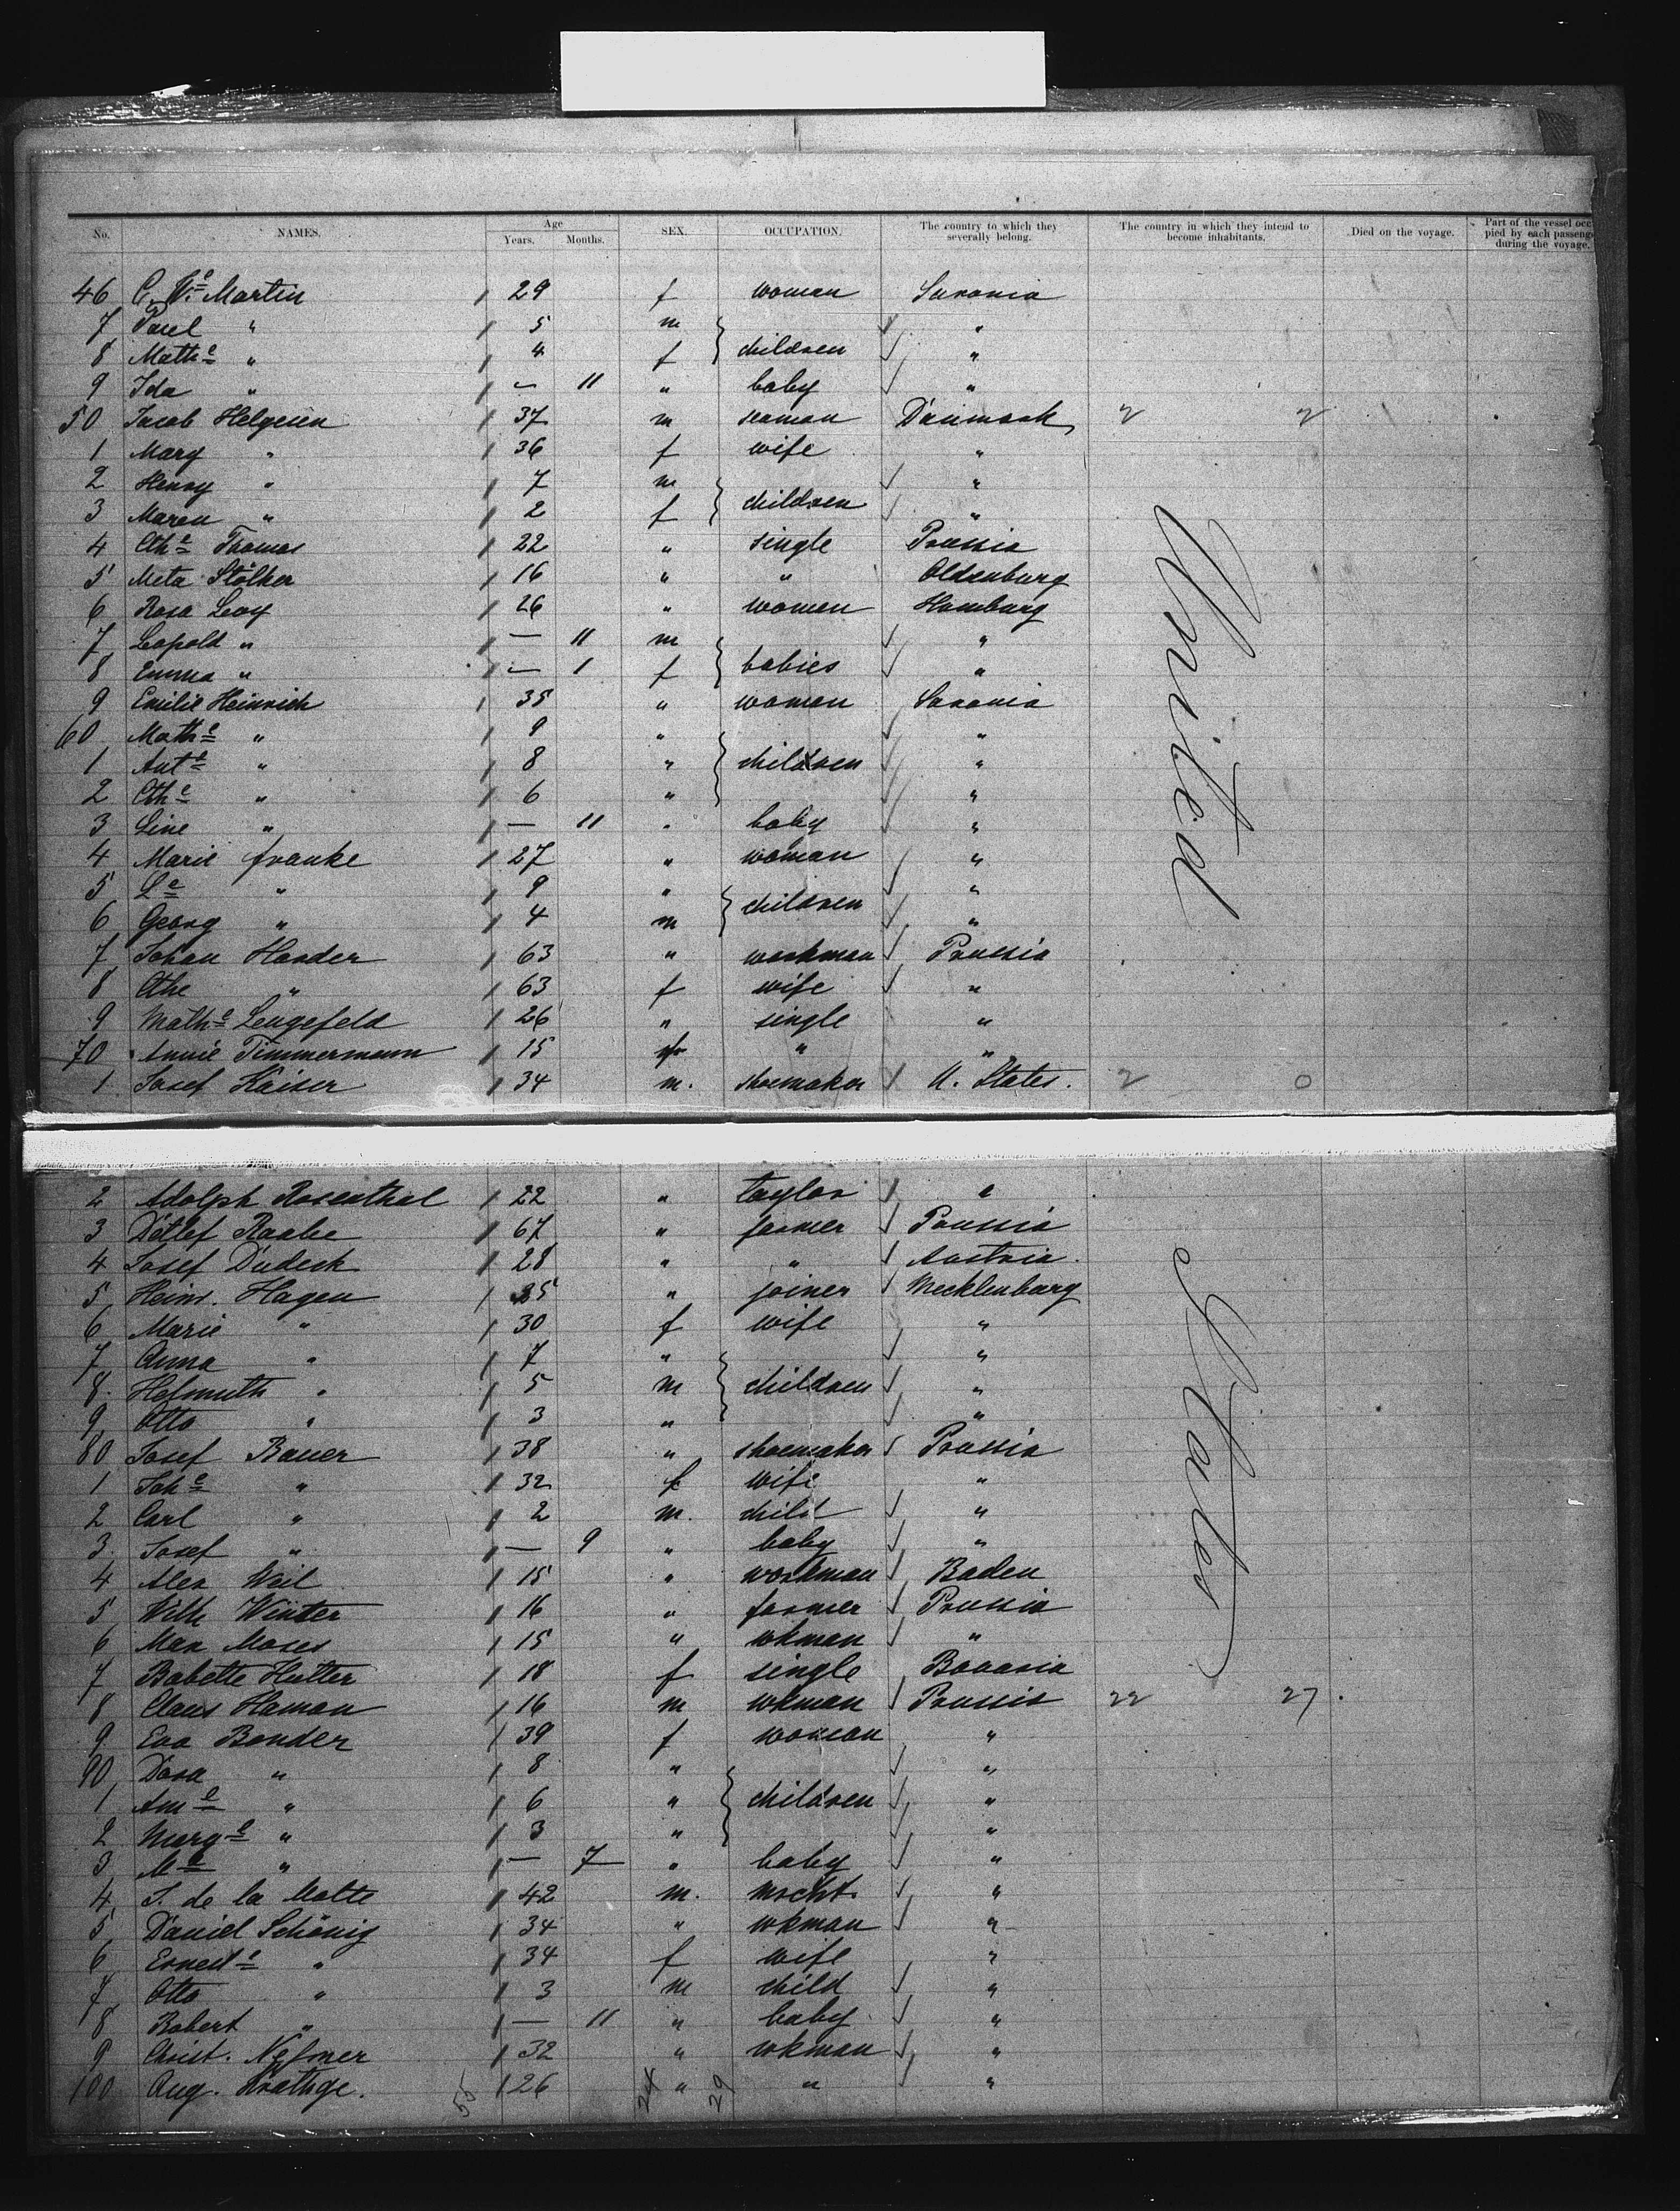 No. NAMES. Age Years. Months. SEX. OCCUPATION. The country to which they severally belong. The country in which they intend to become inhabitants. Died on the voyage. Part of the vessel occupied by each passenger during the voyage.
46 Martin 29 f woman Saxonia
7 " 5 m "
8 Math e " 4 f children "
9 Ida " — 11 " baby "
50 Jacob Helgesen 37 m seaman Danmark 2 2
1 Mary " 36 f wife "
2 Henry " 7 m "
3 Maren " 2 f children "
4 Cth e Thomas 22 " single Prussia
5 Meta Stölker 16 " " Oldenburg
6 Rosa Levy 26 " woman Hamburg
7 Leopold " — 11 m "
8 Emma " — 1 f babies "
9 Emilie Heinrich 35 " woman Saxonia
60 Math e " 9 " "
1 Aut e " 8 " children "
2 Cth e " 6 " "
3 Line " — 11 " baby "
4 Marie Franke 27 " woman "
5 L e " 9 " "
6 Georg " 4 m children "
7 Johan Harder 63 " workman Prussia
8 Cthe " 63 f wife "
9 Math e Lengefeld 26 " single "
70 Annie Timmermann 15 " "
1 Josef Kaiser 34 m. shoemaker U. States. 2 0
United
2 Adolph Rosenthal 22 " taylor "
3 Detlef Raabe 67 " farmer Prussia
4 Josef Dudeck 28 " " Austria.
5 Heinr. Hagen 35 " joiner Mecklenburg
6 Marie " 30 f wife "
7 Anna " 7 " "
8 Helmuth " 5 m children "
9 Otto " 3 " "
80 Josef Bauer 38 " shoemaker Prussia
1 Joh e " 32 f wife "
2 Carl " 2 m. child "
3 Josef " — 9 " baby "
4 Alex Weil 15 " workman Baden
5 Wilh Winter 16 " farmer Prussia
6 Max Moses 15 " wkman "
7 Babette Hutter 18 f single Bavaria
8 Claus Haman 16 m wkman Prussia 22 27
9 Eva Bender 39 f woman "
90 Dora " 8 " "
1 Am e " 6 " children "
2 Marg e " 3 " "
3 M e " — 7 " baby "
4 de la Motte 42 m. mrcht. "
5 Daniel Schönig 34 " wkman "
6 Ernest e " 34 f wife "
7 Otto " 3 m child "
8 Robert " — 11 " baby "
9 Christ. 32 " wkman "
100 Aug. 26 " " "
States
55 24 29